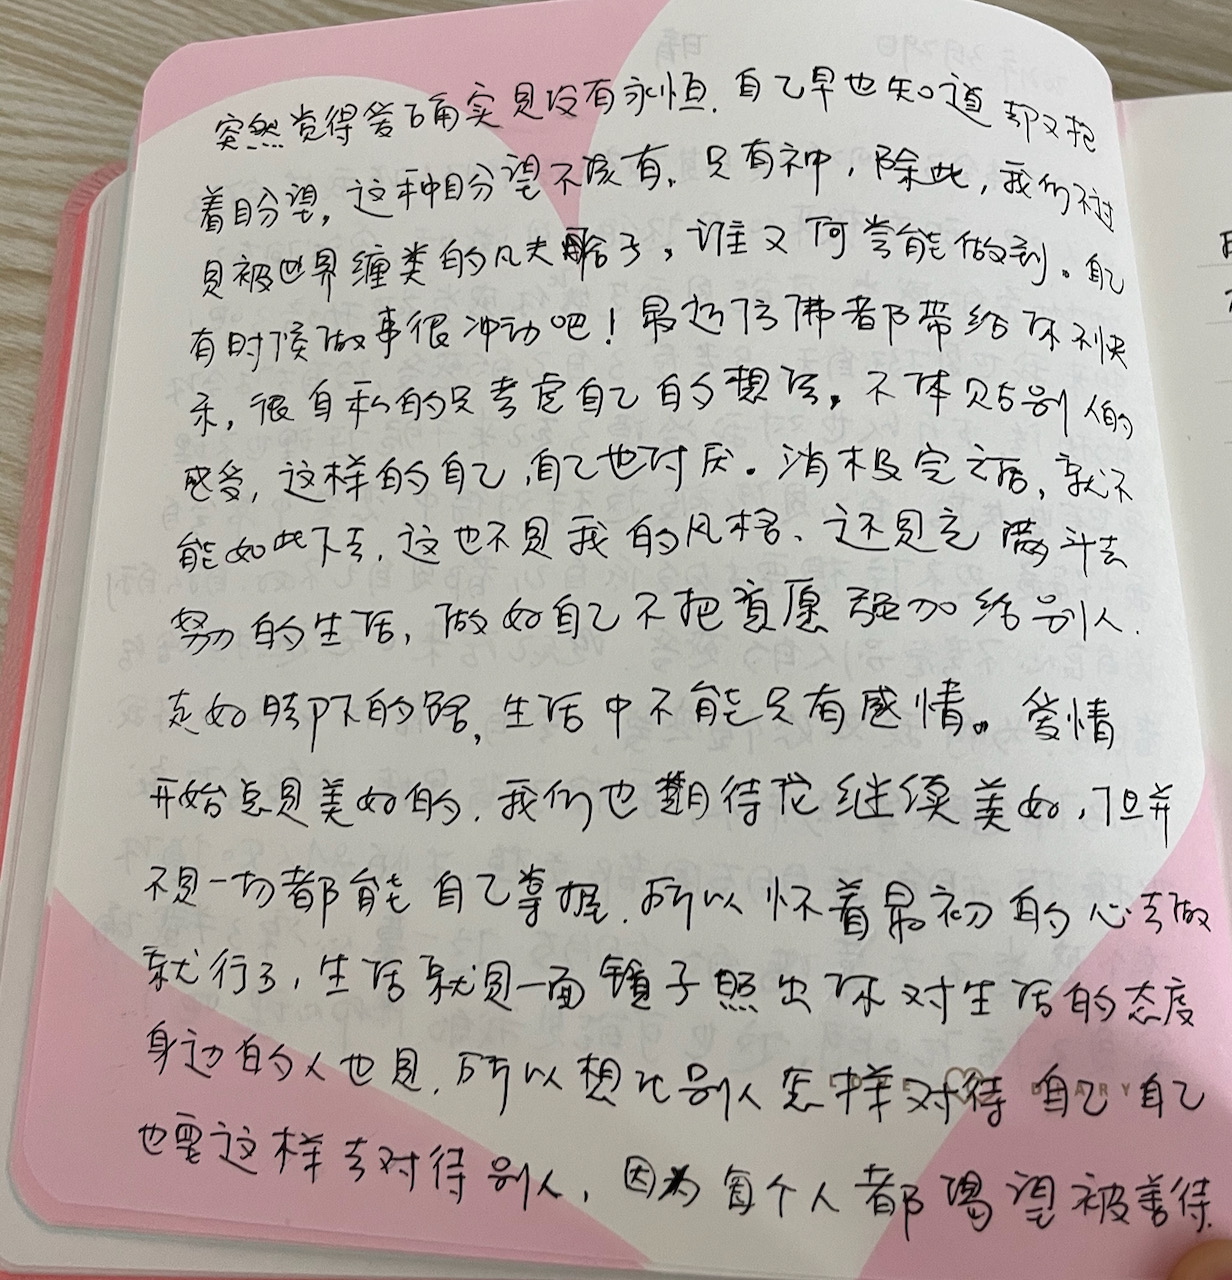 突然觉得爱确实是没有永恒.自己早也知道却又抱
着盼望,这种盼望不该有。只有神,除此,我们不过
是被世界缠类的凡夫俗子,谁又何尝能做到。自己
有时候做事很冲动吧!最近好像都带给你不快
乐,很自私的只考虑自己的想法,不体贴别人的
感受,这样的自己,自己也讨厌。消极完之后,就不
能如此下去,这也不是我的风格、还是充满斗去
努力的生活,做好自己不把意愿强加给别人.
走好脚下的路,生活中不能只有感情。爱情
开始总是美好的.我们也期待花继续美好,但并
不是一切都能自己掌握.所以怀着最初的心去做
就行了,生活就是一面镜子照出你对生活的态度
身边的人也是.所以想让别人怎样对待自己自己
DIARY
也要这样去对待别人,因为每个人都渴望被善待.